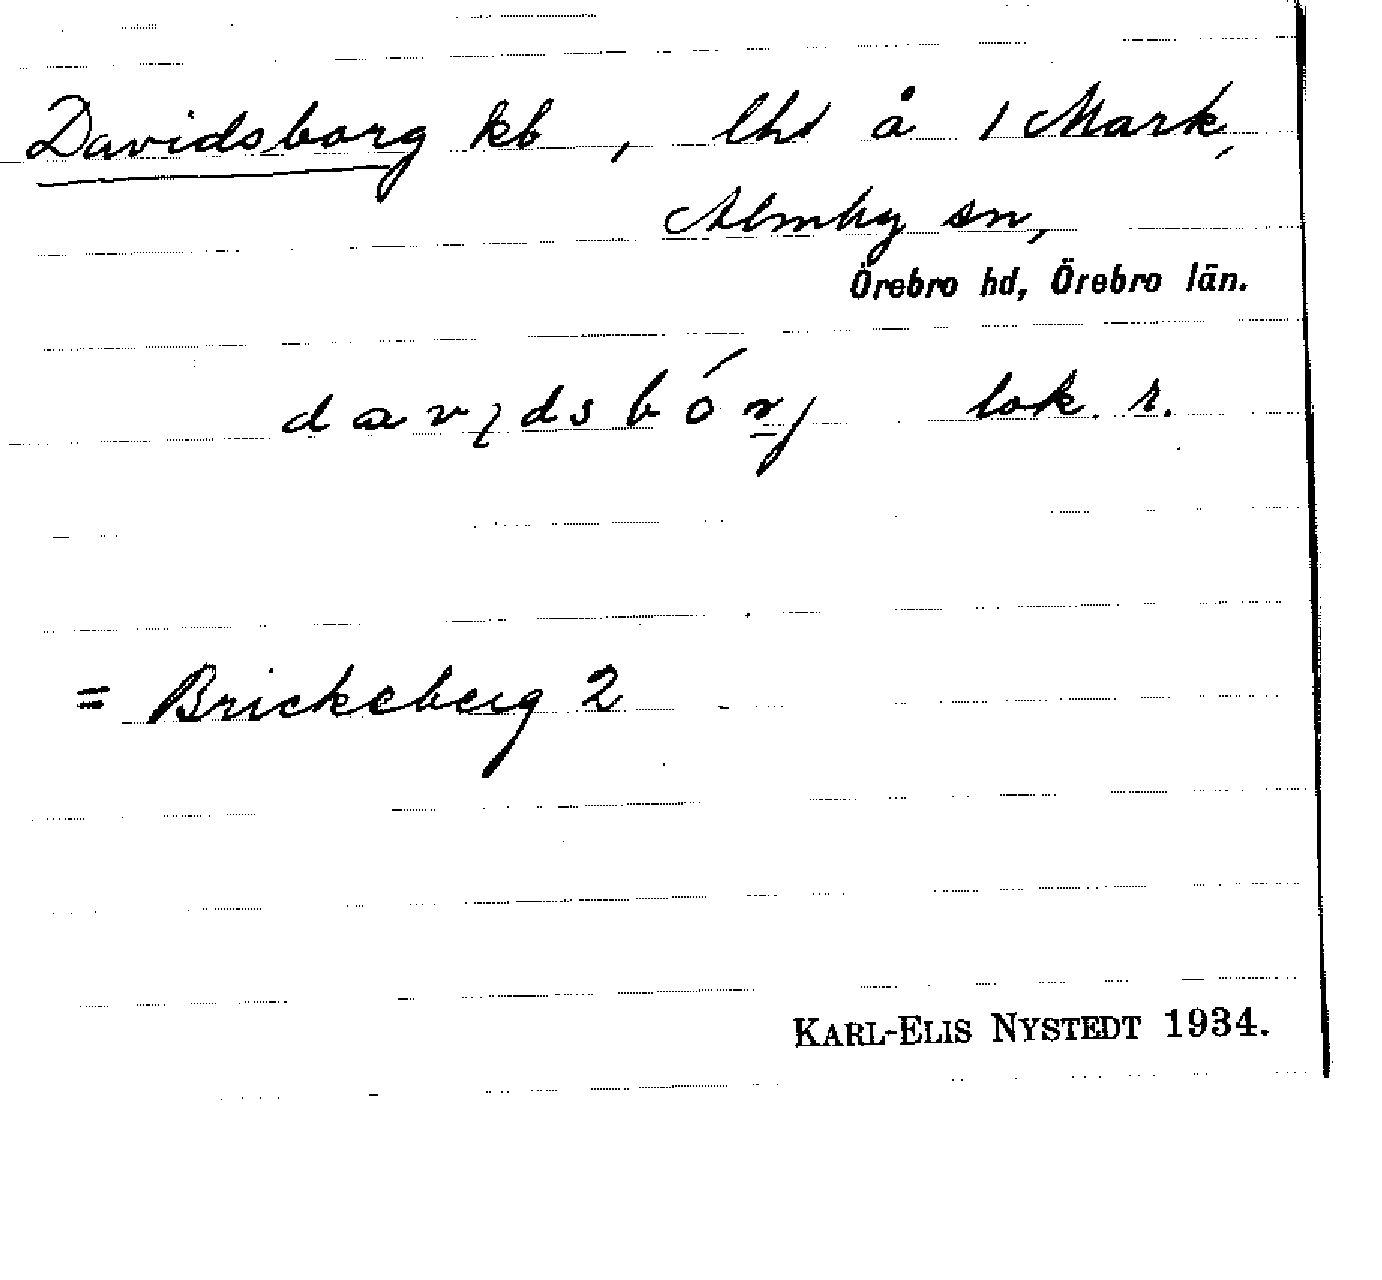 Davidsborg kb, lhs å 1 Mark,
Almby sn,
Örebro hd, Örebro län.
lok. r.
= Brickeberg 2
KARL-ELIS NYSTEDT 1934.